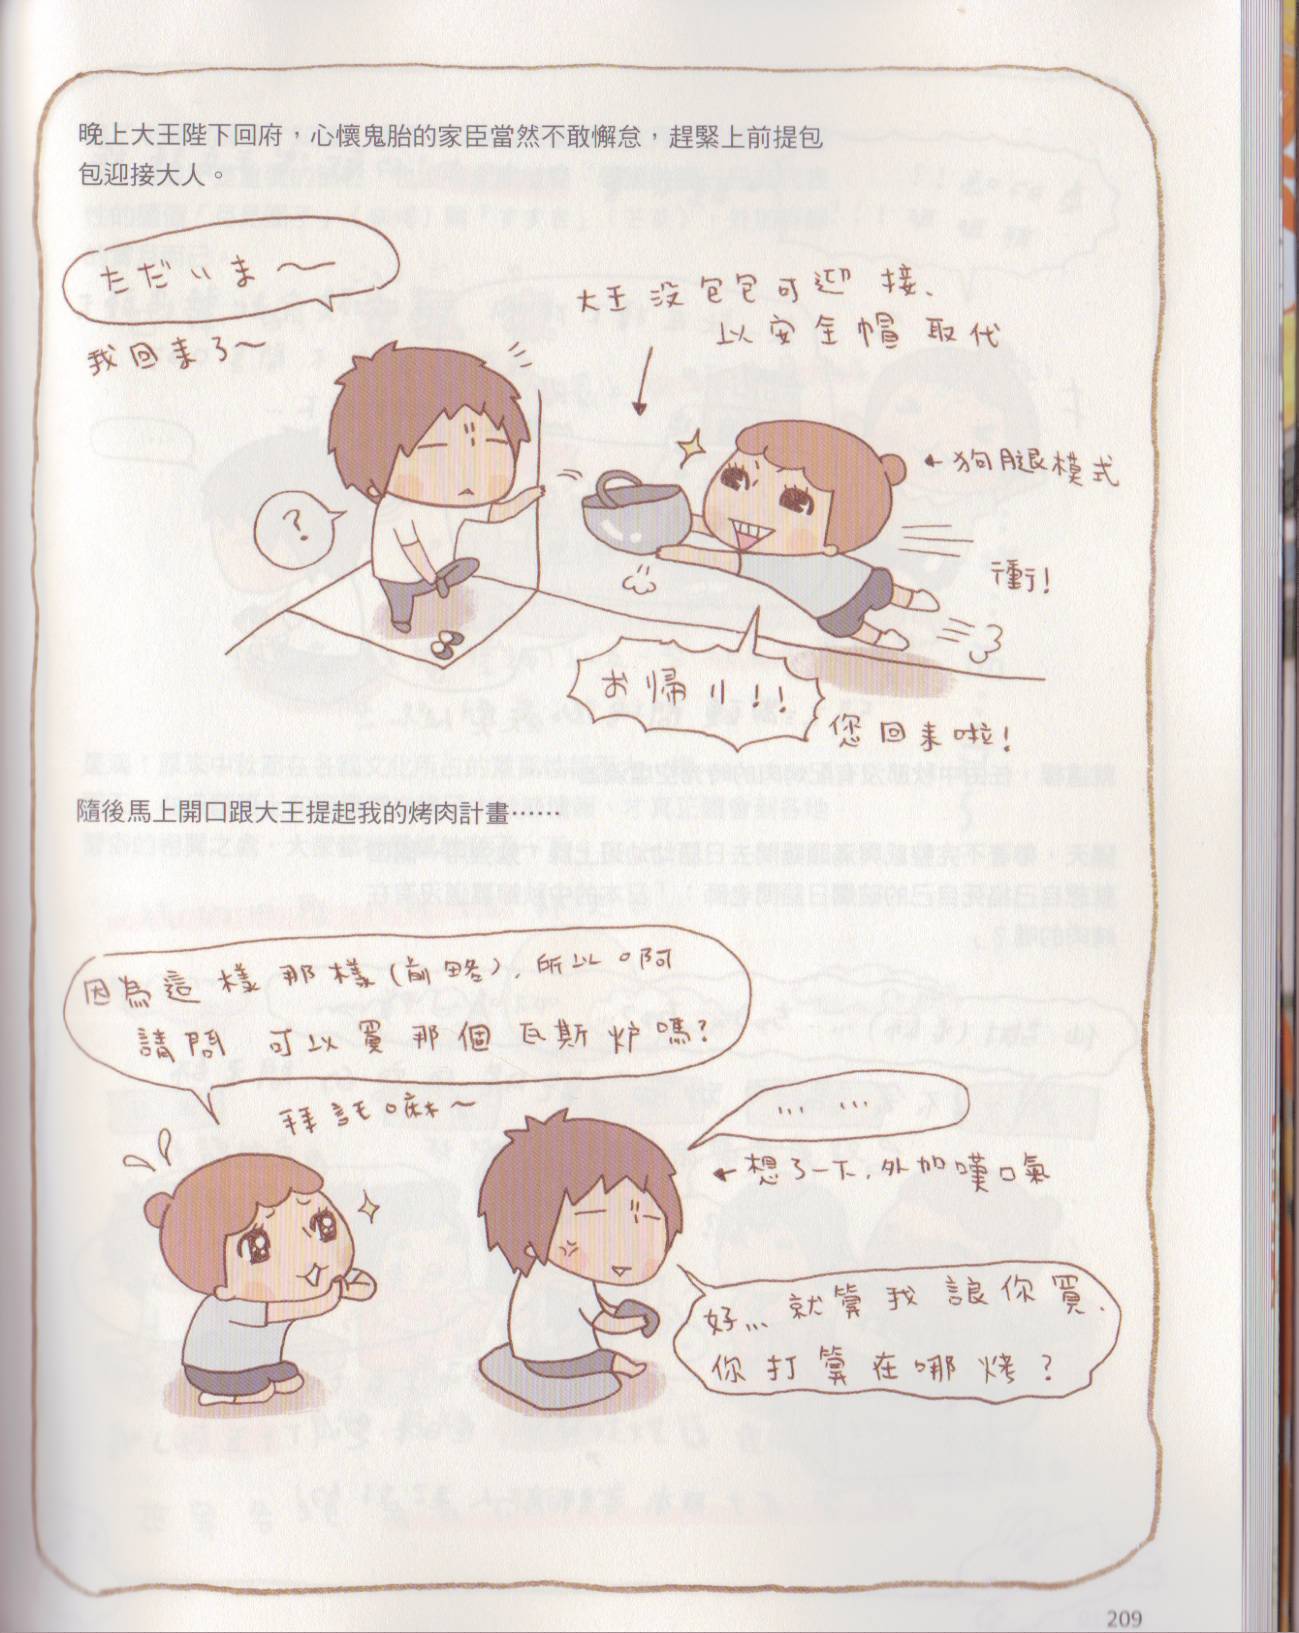 晚上大王陛下回府，心懷鬼胎的家臣當然不敢懈怠，趕緊上前提包
包迎接大人。
ただいま～
我回來了～
大王沒包包可迎接、
以安全帽取代
←狗腿模式
?
衝!
お帰り!!
您回來啦!
隨後馬上開口跟大王提起我的烤肉計畫⋯⋯
因為這樣那樣(前略), 所以啊
請問可以買那個瓦斯炉嗎?
拜託嘛～
... ...
←想了一下, 外加嘆口氣
好... 就算我讓你買、
你打算在哪烤?
209